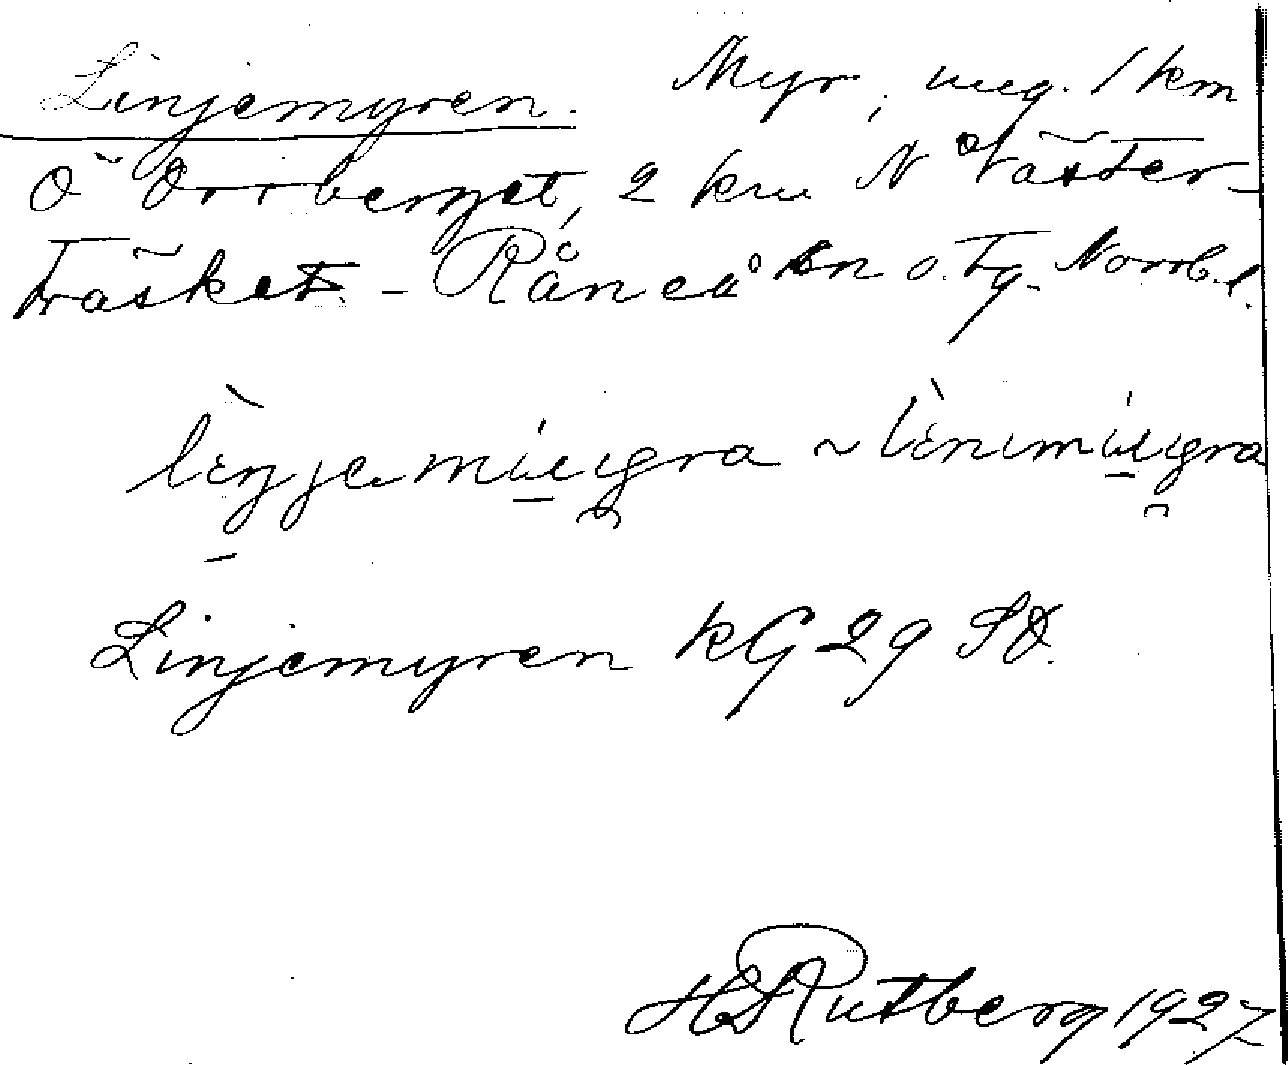 Linjemyren. Myr, ung. 1 km
Ö Orrberget, 2 km N Väster-
träsket. - Råneå sn o. tg. Norrb. l.
Linjemyren kG 29 SO.
H Rutberg 1927